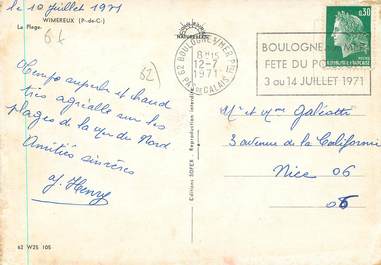 le 10 juillet 1971
WIMEREUX (P.-de-C.)
La Plage.
64
62
NATURELLES
62 BOULOGNE S/MER PPAL
8H15
12-7
1971
PAS DE CALAIS
BOULOGNE S/ MER
FETE DU PO
3 au 14 JUILLET 1971
0,30
REPUBLIQUE FRANCAISE
POSTES
Temps superbe et chaud
très agréable sur les
plages de la mer du Nord
Amitiés sincères
J. Henry
Editions SOFER
Reproduction interdite
Mr et Mme Galéotti
3 avenue de la Californie
Nice 06
06
62 W25 105